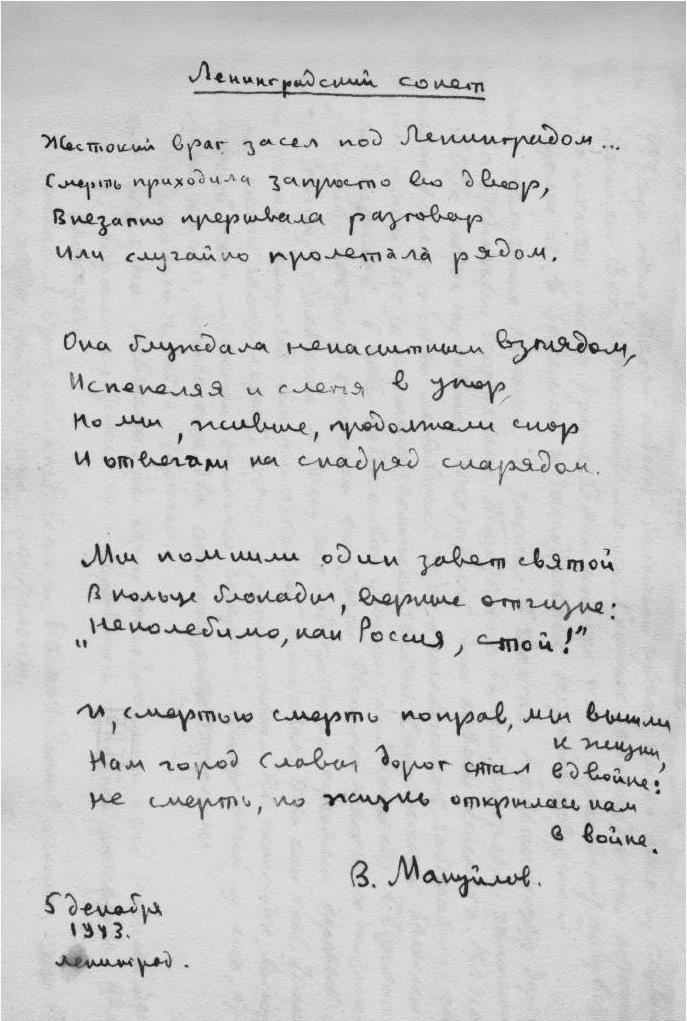 Ленинградский сонет
Жестокий враг засел под Ленинградом...
Смерть приходила запросто во двор,
Внезапно прерывала разговор
Или случайно пролетала рядом.
Она блуждала ненасытным взглядом,
Испепеляя и слепя в упор,
Но мы, живые, продолжали спор
И отвечали на снадряд снарядом.
Мы помнили один завет святой
В кольце блокады, верные отчизне:
„Неколебимо, как Россия, стой!"
И, смертью смерть поправ, мы вышли
к жизни,
Нам город Славы дорог стал вдвойне:
Не смерть, но жизнь открылась нам
в войне.
В. Мануйлов.
5 декабря
1943.
Ленинград.